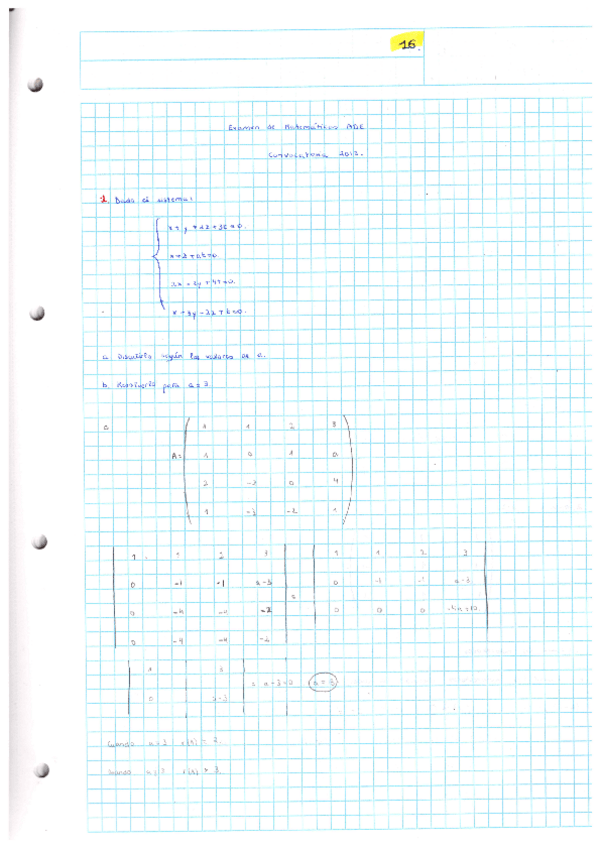 16.
Examen de Matemáticas ADE
Convocatoria 2012.
1. Dado el sistema:
x + y + 2z + 3t = 0.
x + z + at = 0.
2x - 2y + 4t = 0.
x - 3y - 2z + t = 0.
a. Discutirlo según los valores de a.
b. Resolverlo para a = 3
a
1 1 2 3
A = 1 0 1 a
2 -2 0 4
1 -3 -2 1
1 1 2 3 1 1 2 3
0 -1 -1 a-3 = 0 -1 -1 a-3
0 -4 -4 -2 0 0 0
0 -4 -4 -2
1 3
0 a-3
Cuando r(A) = 2.
Cuando r(A) = 3.